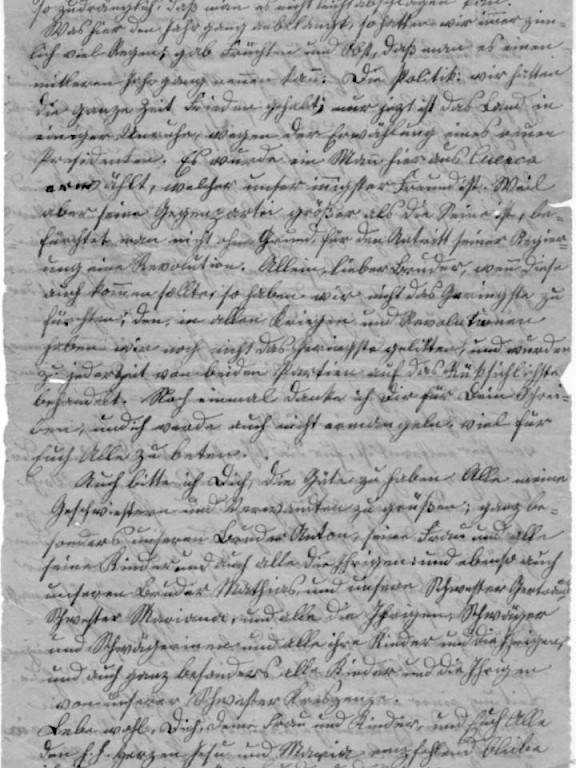 so zudringlich, daß man es nicht leicht abschlagen kan.
Was hier den Jahrgang anbelangt, so hatten wir imer zim-
lich viel Regen; gab Früchten und Obst, daß man es einen
mitleren Jahrgang nenen kan. Die Politik: wir hatten
die ganze Zeit Frieden gehabt; nur jezt ist das Land in
einiger Unruhe, wegen der Erwählung eines neuen
Presidenten. Es wurde ein Man hier aus Cuenca
erwählt, welcher unser inigster Freund ist. Weil
aber seine Gegenpartei größer als die Seine ist, be-
fürchtet man nicht ohne Grund, für den Antritt seiner Regier-
ung eine Revolution. Allein, lieber Bruder, wenn diese
auch komen sollte, so haben wir nicht das Geringste zu
fürchten; den, in allen Kriegen und Revolutionen
haben wir noch nicht das Geringste gelitten, und wurden
zu jederzeit von beiden Partien auf das Rücksichlichste
behandelt. Noch einmal danke ich Dir für Dein Schrei-
ben, und ich werde auch nicht ermangeln, viel für
Euch Alle zu beten.
Auch bitte ich Dich, die Güte zu haben Alle meine
Geschwistern und Verwandten zu grüßen; ganz be-
sonders unseren Bruder Anton, seine Frau und alle
seine Kinder und auch alle die Ihrigen: und ebenso auch
unseren Bruder Mathias, und unsere Schwester Gertrud
Schwester Mariana, und alle die Ihrigen, Schwäger
und Schwägerinen und alle ihre Kinder und die Ihrigen,
und auch ganz besonders alle Kinder und die Ihrigen
von unserer Schwester Kreszenze.
Lebe wohl, Dich, Deine Frau und Kinder, und Euch Alle
den h.h. Herzen Jesu und Mariä empfehlend bleibe